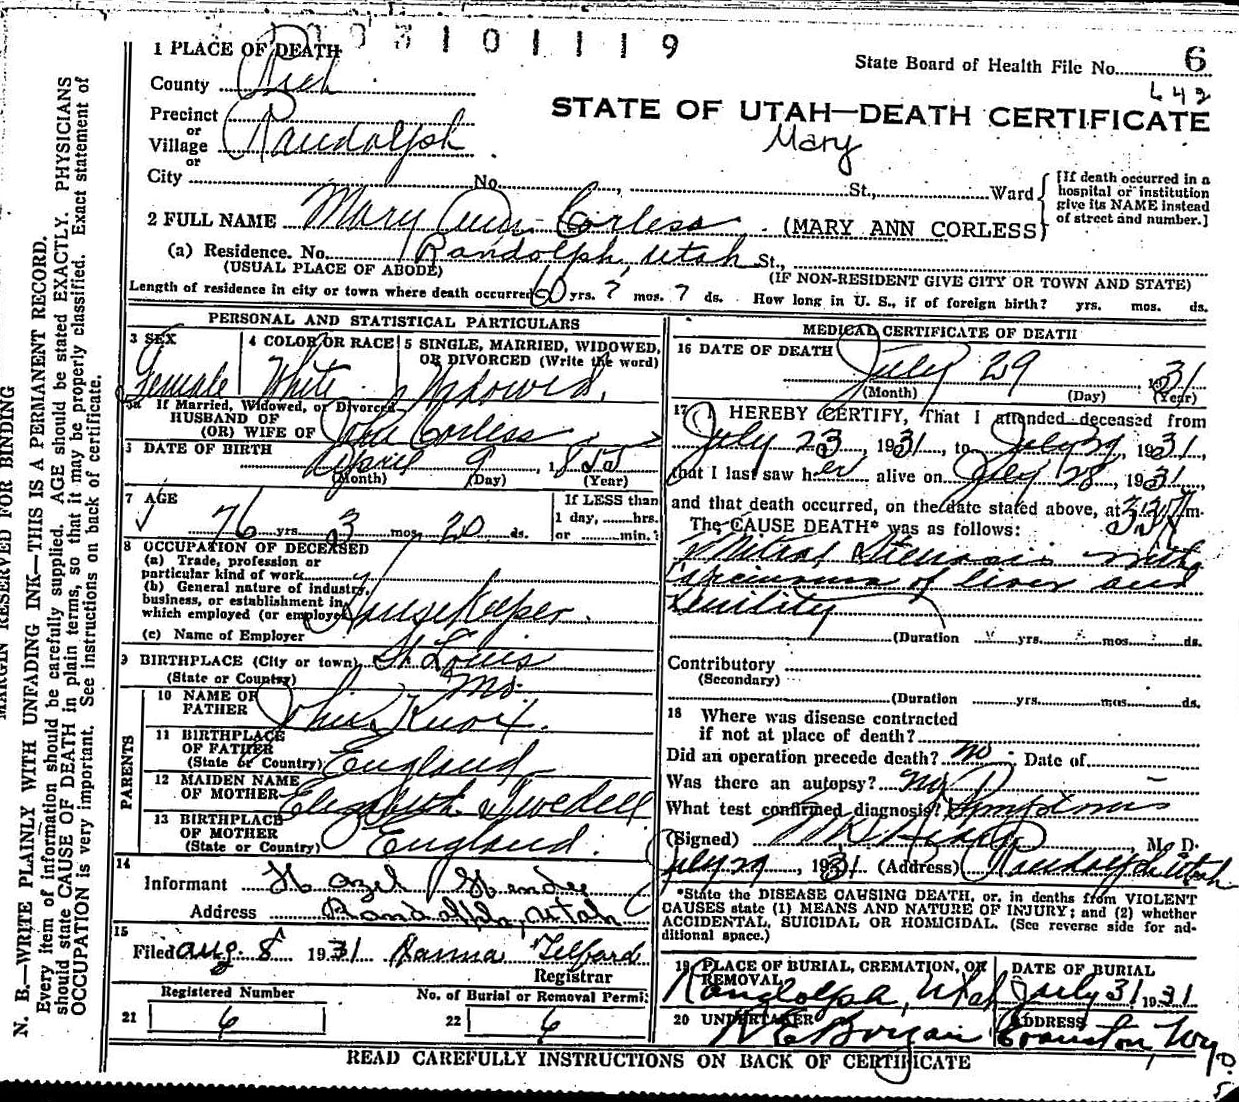 1 PLACE OF DEATH 1 0 1 1 1 9
State Board of Health File No. 6
County Rich
642
STATE OF UTAH—DEATH CERTIFICATE
Precinct or Village Randolph
Mary
or
City No. St., Ward
[If death occurred in a hospital or institution give its NAME instead of street and number.]
2 FULL NAME Mary Ann Corless (MARY ANN CORLESS)
(a) Residence. No. Randolph, Utah St.,
(USUAL PLACE OF ABODE) (IF NON-RESIDENT GIVE CITY OR TOWN AND STATE)
Length of residence in city or town where death occurred 60 yrs. 7 mos. 7 ds. How long in U. S., if of foreign birth? yrs. mos. ds.
PERSONAL AND STATISTICAL PARTICULARS
3 SEX 4 COLOR OR RACE 5 SINGLE, MARRIED, WIDOWED, OR DIVORCED (Write the word)
Female White Widowed.
If Married, Widowed, or Divorced
HUSBAND OF
(OR) WIFE OF John Corless
DATE OF BIRTH April 9, 1855
(Month) (Day) (Year)
7 AGE 76 yrs. 3 mos. 20 ds.
If LESS than
1 day, hrs.
or min.
8 OCCUPATION OF DECEASED
(a) Trade, profession or
particular kind of work
(b) General nature of industry,
business, or establishment in
which employed (or employer) Housekeeper.
(c) Name of Employer
9 BIRTHPLACE (City or town) St. Louis
(State or Country) Mo.
PARENTS
10 NAME OF FATHER John
11 BIRTHPLACE OF FATHER
(State or Country) England
12 MAIDEN NAME OF MOTHER Elizabeth
13 BIRTHPLACE OF MOTHER
(State or Country) England.
14
Informant Hazel
Address Randolph, Utah
15
Filed Aug. 8 1931 Hanna Telford
Registrar
Registered Number No. of Burial or Removal Permit
21 6 22 6
MEDICAL CERTIFICATE OF DEATH
16 DATE OF DEATH July 29 1931
(Month) (Day) (Year)
17 I HEREBY CERTIFY, That I attended deceased from
July 23, 1931, to July 29, 1931,
that I last saw her alive on July 28, 1931,
and that death occurred, on the date stated above, at m.
The CAUSE DEATH* was as follows:
Mitral Stenosis with
carcinoma of liver and
senility
(Duration yrs. mos. ds.
Contributory
(Secondary)
(Duration yrs. mos. ds.
18 Where was disease contracted
if not at place of death?
Did an operation precede death? no. Date of
Was there an autopsy? no
What test confirmed diagnosis? Symptoms
(Signed) M. D.
July 29, 1931 (Address) Randolph Utah
*State the DISEASE CAUSING DEATH, or, in deaths from VIOLENT
CAUSES state (1) MEANS AND NATURE OF INJURY; and (2) whether
ACCIDENTAL, SUICIDAL OR HOMICIDAL. (See reverse side for ad-
ditional space.)
19 PLACE OF BURIAL, CREMATION, OR REMOVAL DATE OF BURIAL
Randolph, Utah July 31 1931
20 UNDERTAKER ADDRESS
Evanston, Wyo.
READ CAREFULLY INSTRUCTIONS ON BACK OF CERTIFICATE
MARGIN RESERVED FOR BINDING
N. B.—WRITE PLAINLY WITH UNFADING INK—THIS IS A PERMANENT RECORD.
Every item of information should be carefully supplied. AGE should be stated EXACTLY. PHYSICIANS
should state CAUSE OF DEATH in plain terms, so that it may be properly classified. Exact statement of
OCCUPATION is very important. See instructions on back of certificate.